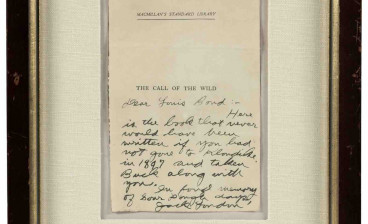 MACMILLAN'S STANDARD LIBRARY
THE CALL OF THE WILD
Dear Louis Bond :-
Here
is the book that never
would have been
written if you had
not gone to Klondike
in 1897 and taken
Buck along with
you.
In fond memory
of Sour Dough days
Jack London